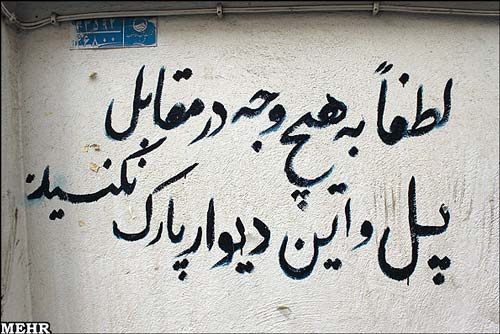 ۴۳۵۹۲
۲۶۸۰۰
لطفاً به هیچ وجه در مقابل
پل و این دیوار پارک نکنید.
MEHR